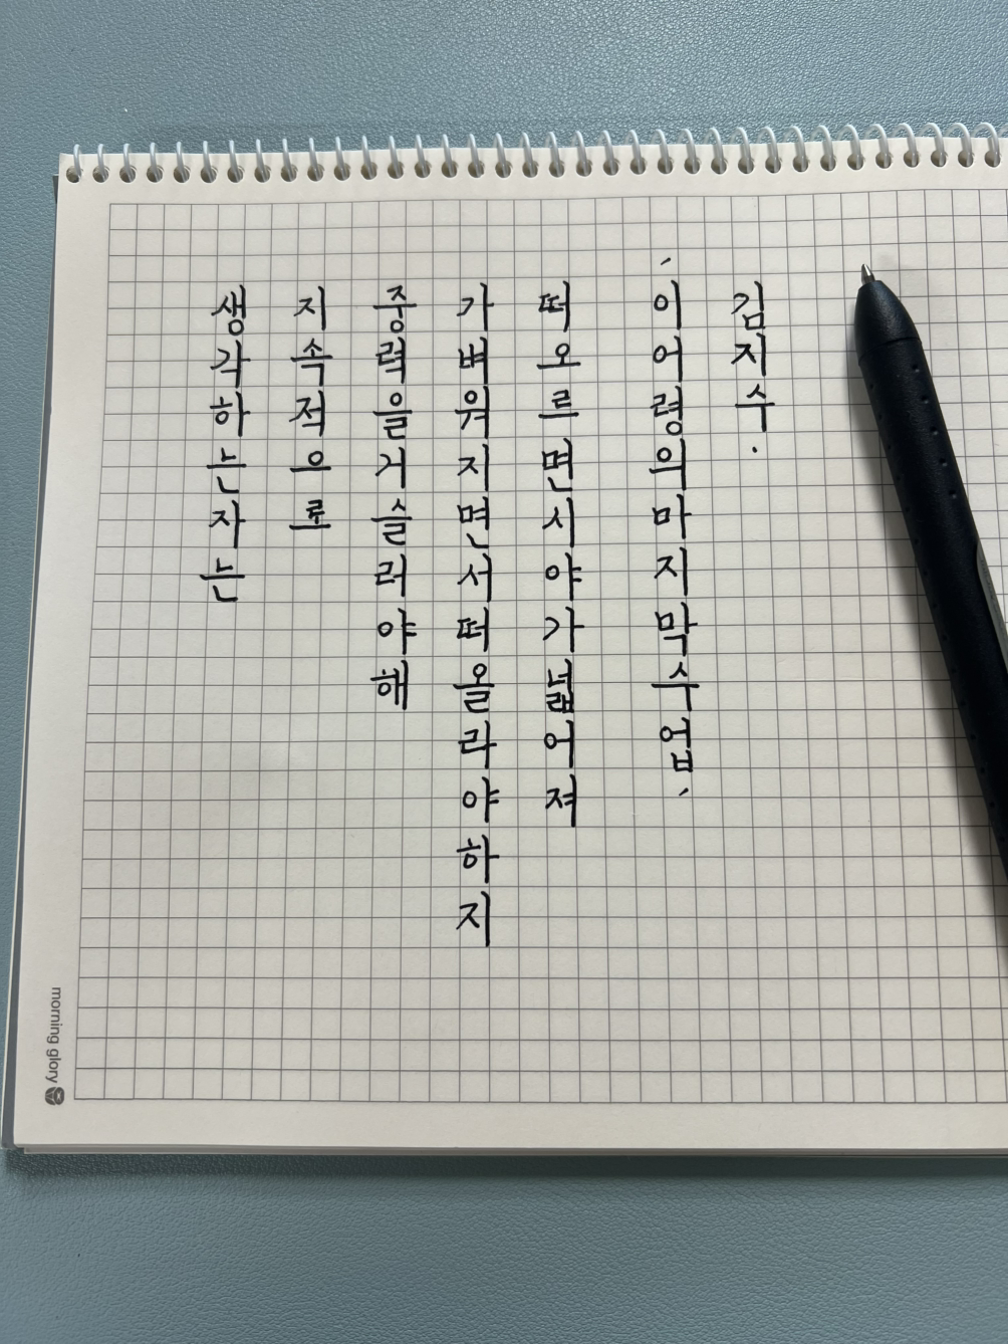 생각하는자는
지속적으로
중력을거슬러야해
가벼워지면서떠올라야하지
떠오르면시야가넓어져
'이어령의마지막수업'
김지수.
morning glory